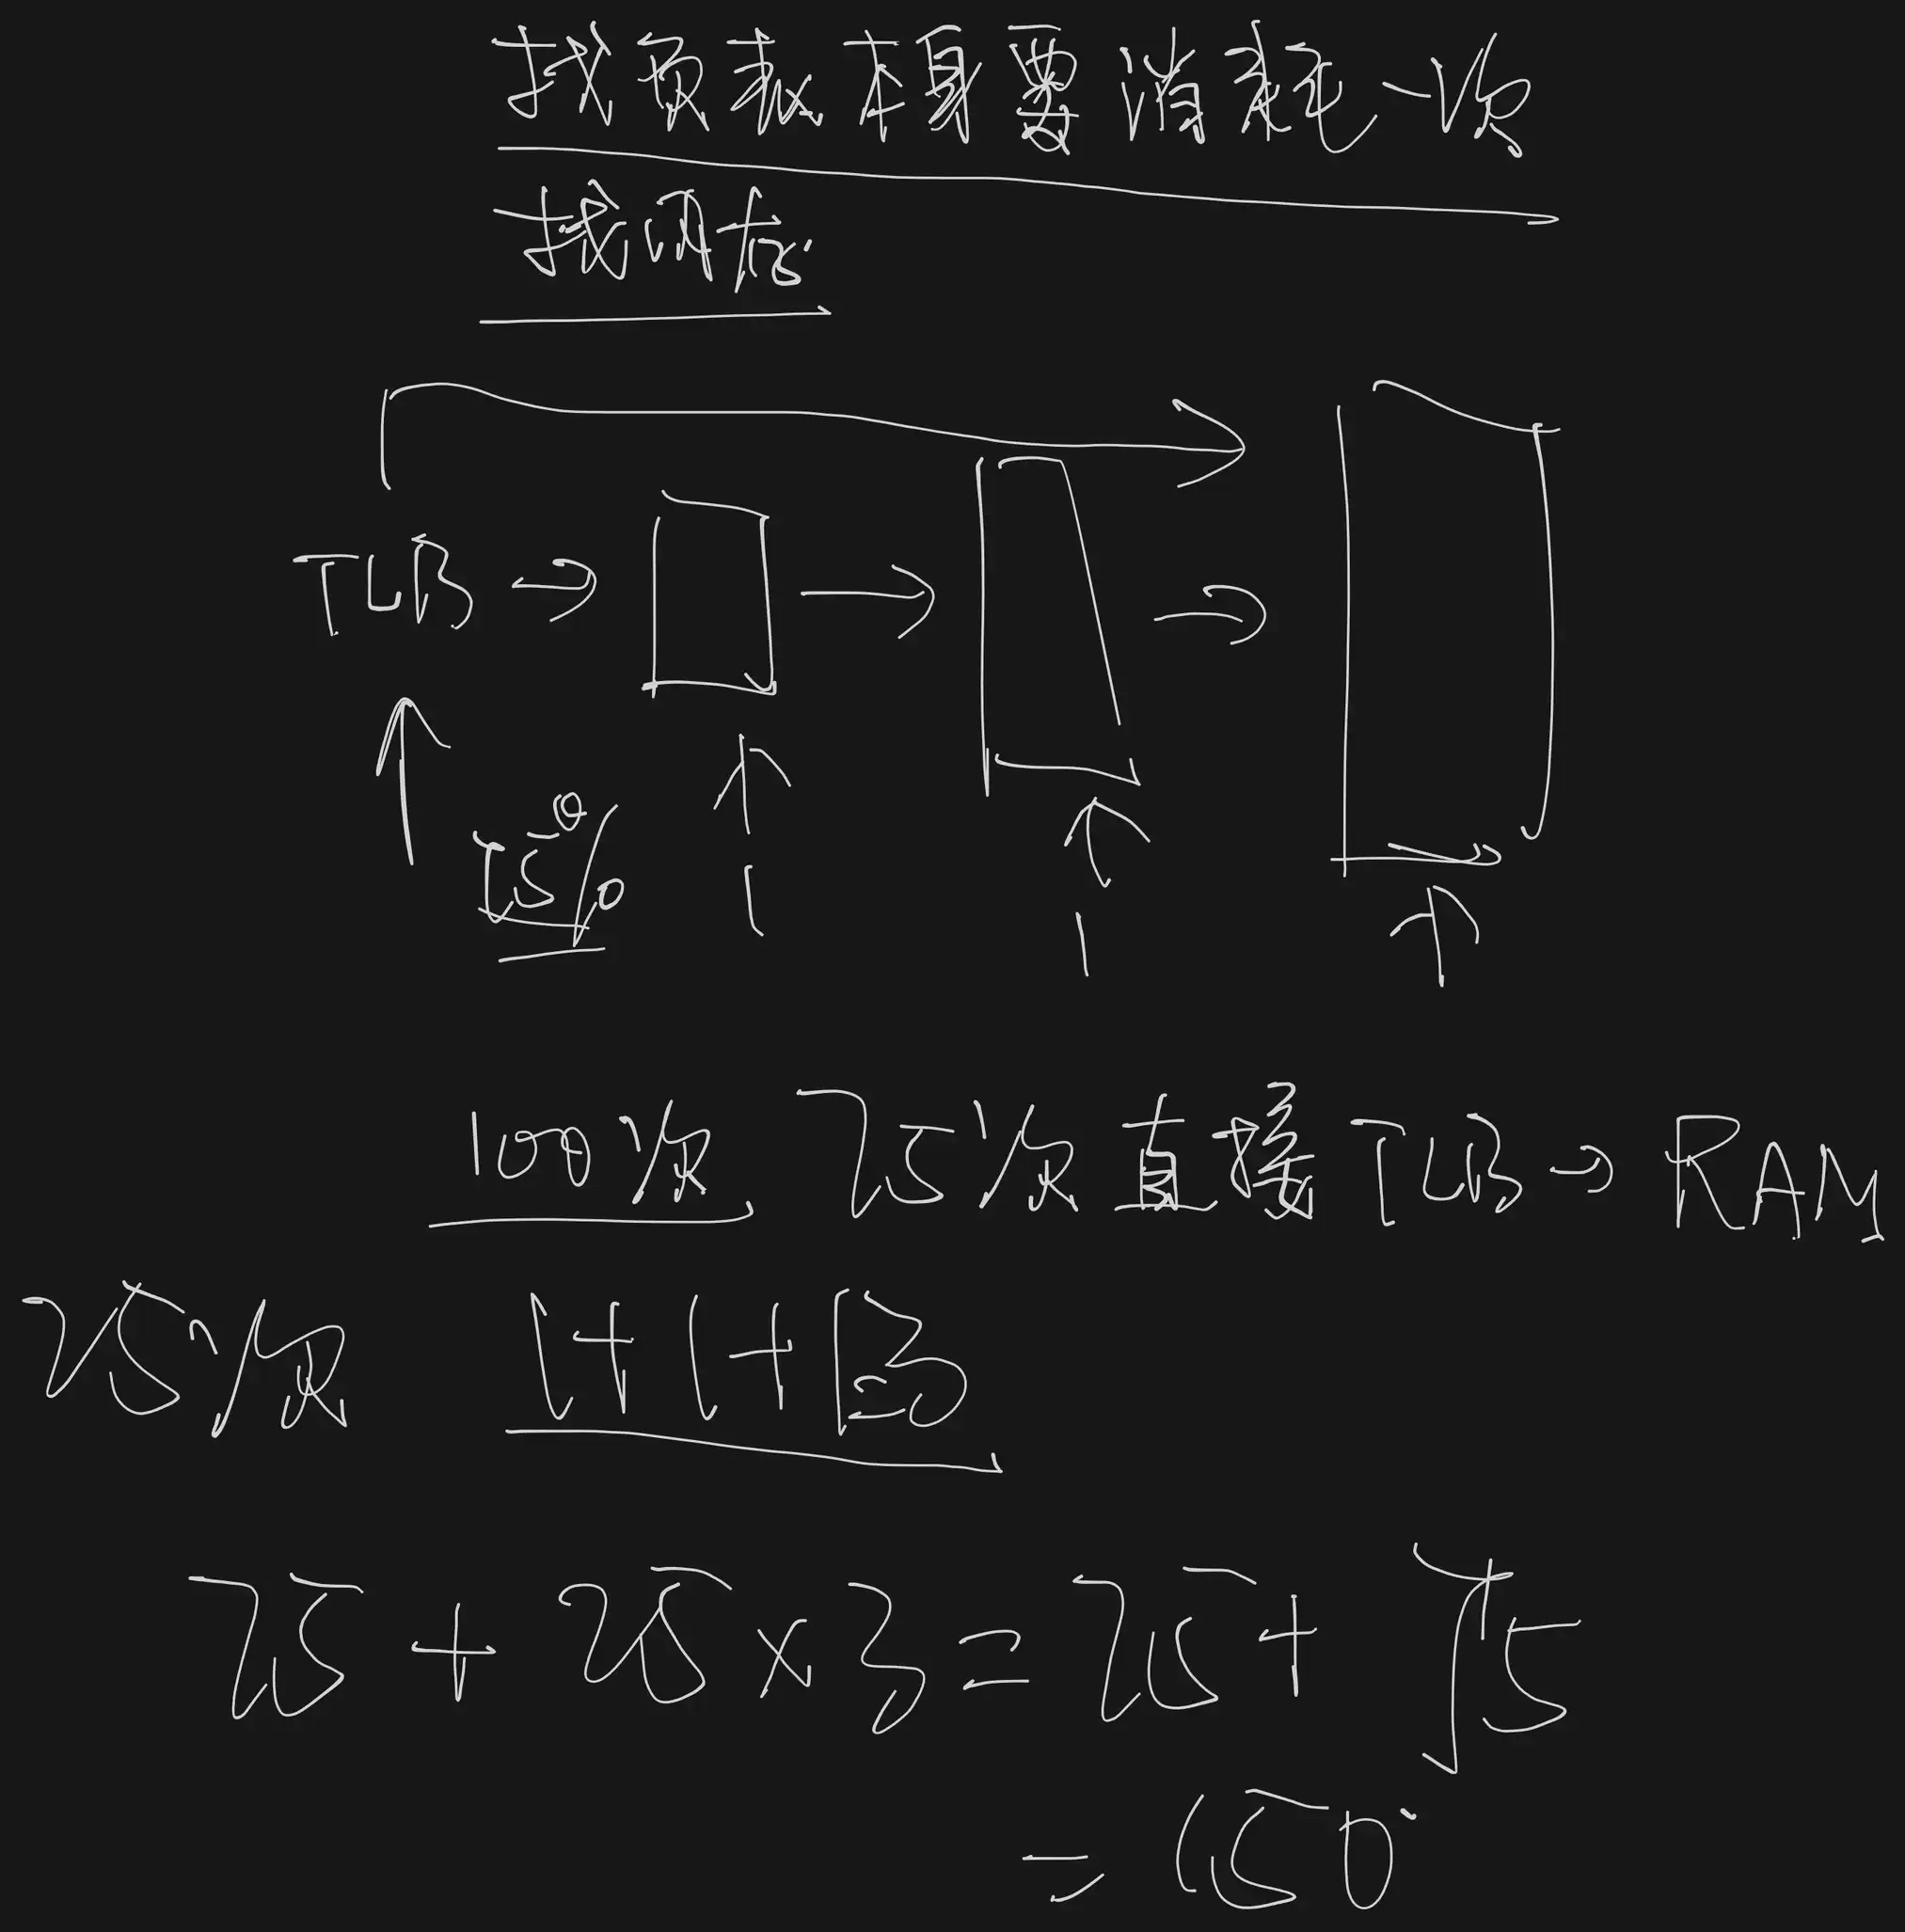 找页表本身要消耗一次
找内存
TLB
75%
1
1
100次 75次直接TLB→RAM
25次 1+1+1
75+25×3=75+75
=150